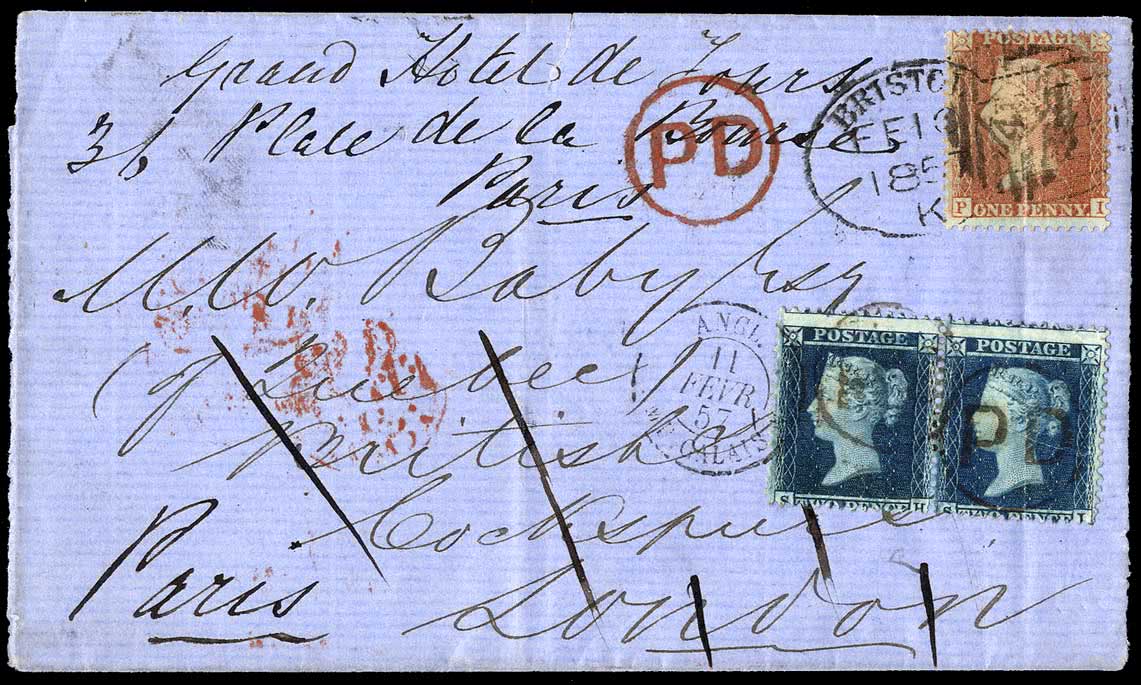 Grand Hotel de Tours
36 Place de la Bourse
Paris
PD
BRISTOL
FE 10
185
K
POSTAGE
P ONE PENNY I
W. Baby Esq
of Quebec
British
Cockspur
Paris
London
ANGL.
11
FEVR.
57
CALAIS
POSTAGE
S TWO PENCE H
POSTAGE
S TWO PENCE I
PD